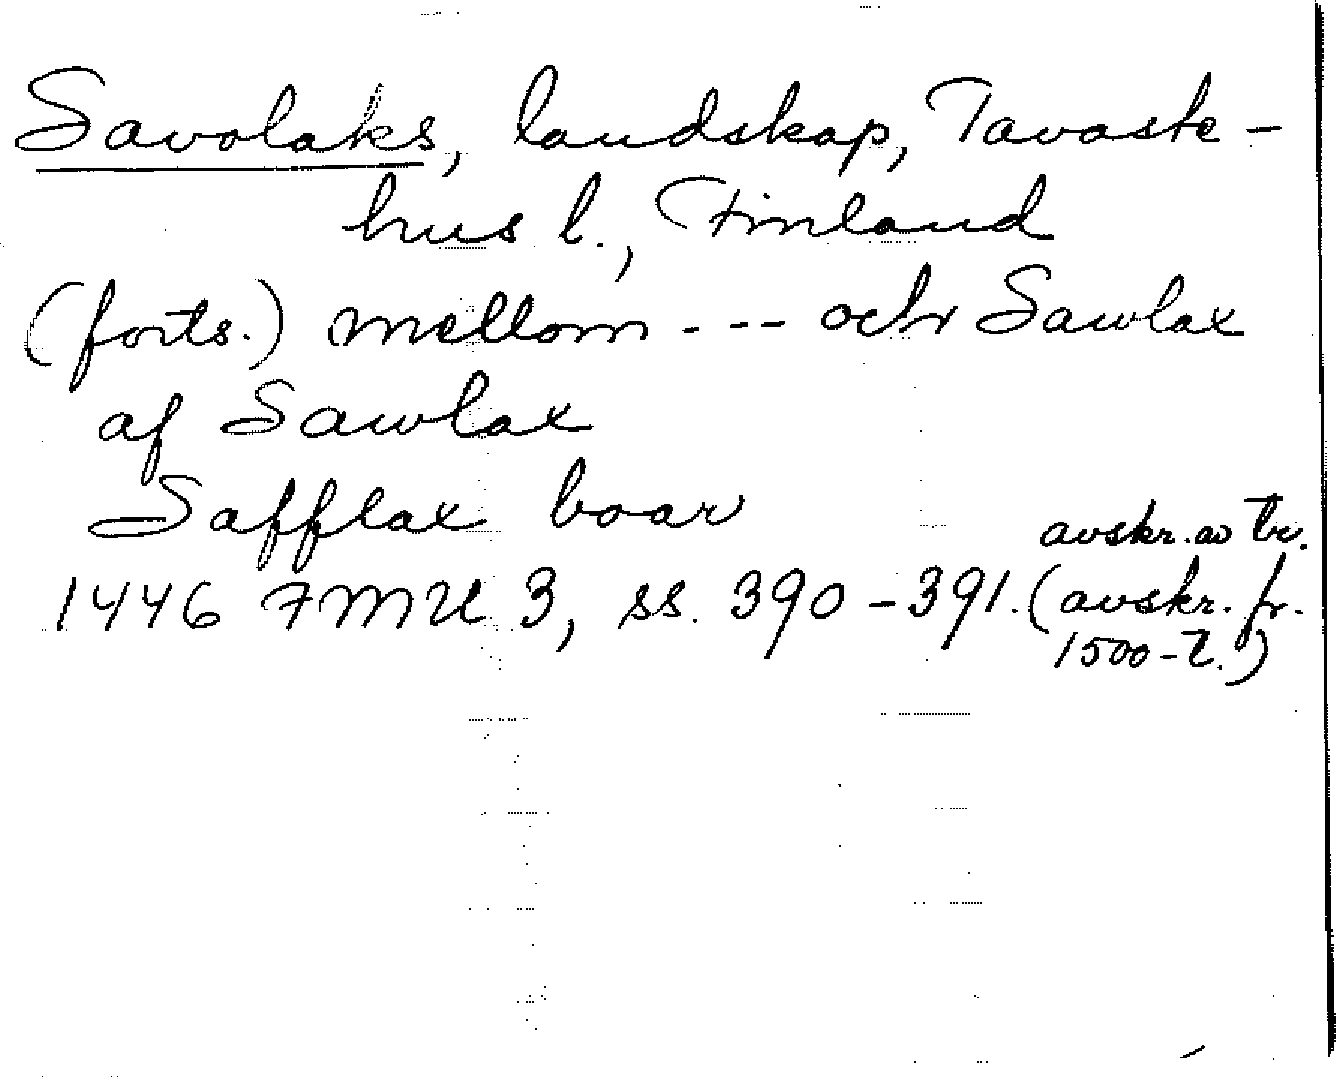 Savolaks, landskap, Tavaste-
hus l., Finland
(forts.) mellom - - - och Sawlax
af Sawlax
Safflax boar
avskr. av tr.
1446 FMU 3, ss. 390-391. (avskr. fr.
1500-t.)